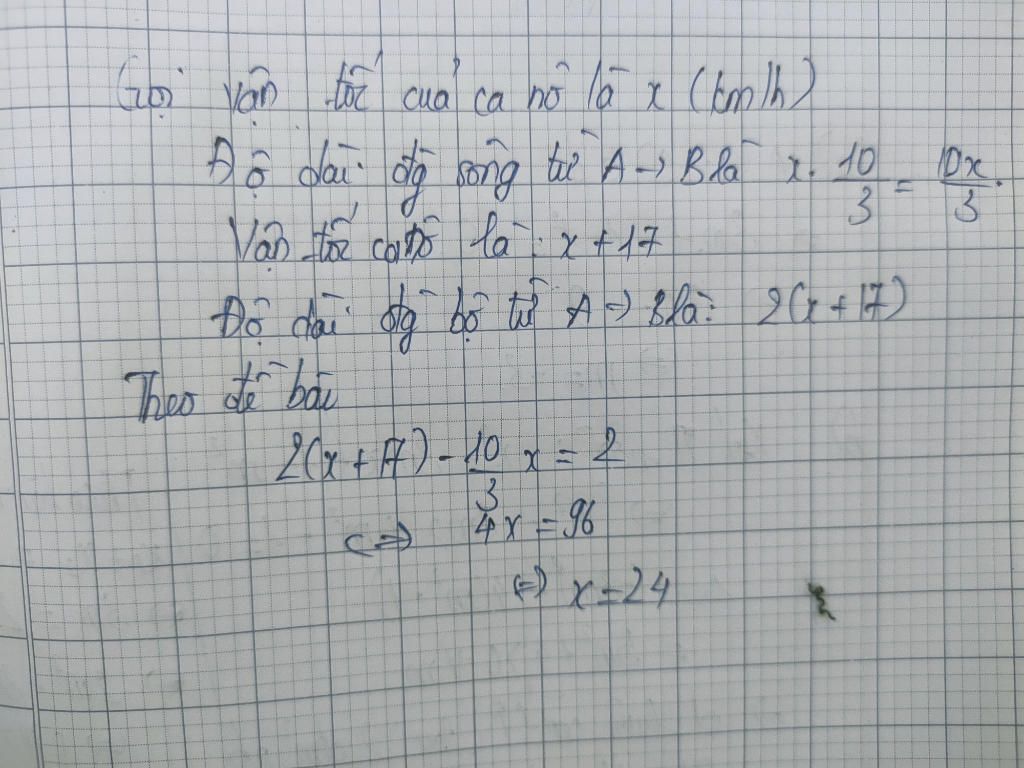 Gọi vận tốc của ca nô là x (km/h)
Độ dài đg sông từ A → B là x. 10/3 = 10x/3.
Vận tốc canô là: x + 17
Độ dài đg bộ từ A → B là: 2(x + 17)
Theo đề bài
2(x + 17) - 10/3 x = 2
<=> 4x = 96
<=> x = 24